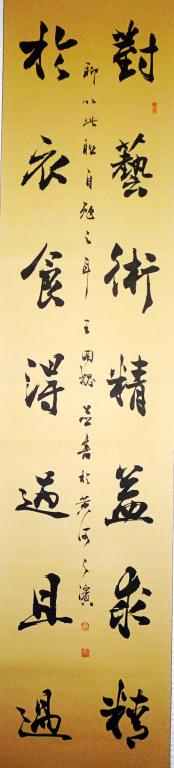 對藝術精益求精
於衣食得過且過
聊以此聯自勉之耳 王國 書於黃河之濱